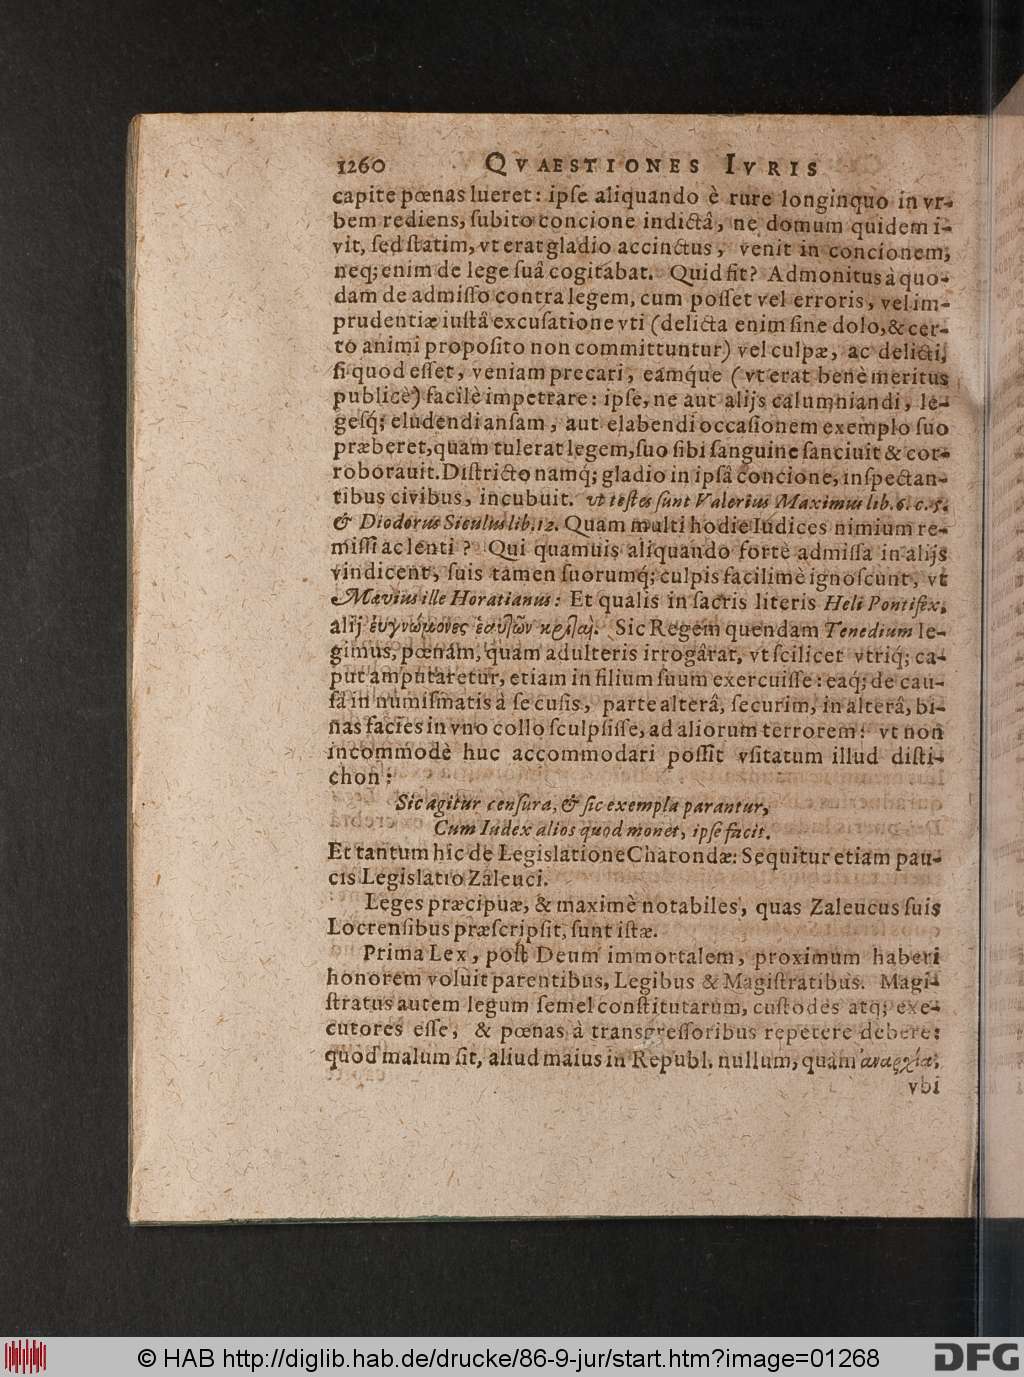 1260 QVAESTIONES IVRIS
capite pœnas lueret: ipſe aliquando è rure longinquo in vr-
bem rediens, ſubito concione indictâ, ne domum quidem i-
vit, ſed ſtatim, vt erat gladio accinctus, venit in concionem,
neq; enim de lege ſuâ cogitabat. Quid fit? Admonitus à quo-
dam de admiſſo contra legem, cum poſſet vel erroris, vel im-
prudentiæ iuſtâ excuſatione vti (delicta enim ſine dolo, & cer-
to animi propoſito non committuntur) vel culpæ, ac delicti,
ſi quod eſſet, veniam precari, eamq́ue (vt erat benè meritus
publicè) facilè impetrare: ipſe, ne aut alijs calumniandi, le-
geſq́; eludendi anſam, aut elabendi occaſionem exemplo ſuo
præberet, quam tulerat legem, ſuo ſibi ſanguine ſanciuit & cor-
roborauit. Diſtricto namq́; gladio in ipſâ concione, inſpectan-
tibus civibus, incubuit. vt teſtes ſunt Valerius Maximus lib. 6. c. 5.
& Diodorus Siculus lib. 12. Quàm multi hodie Iudices nimium re-
miſſi ac lenti? Qui quamuis aliquando fortè admiſſa in alijs
vindicent, ſuis tamen ſuorumq́; culpis facilimè ignoſcunt, vt
Mævius ille Horatianus: Et qualis in ſacris literis Heli Pontifex,
alij εὐγνώμονες ἑαυτῶν κριταὶ. Sic Regem quendam Tenedium le-
gimus, pœnam, quam adulteris irrogârat, vt ſcilicet vtriq́; ca-
put amputaretur, etiam in filium ſuum exercuiſſe: eaq́; de cau-
ſa in numiſmatis à ſe cuſis, parte alterâ, ſecurim, in alterâ, bi-
nas facies in vno collo ſculpſiſſe, ad aliorum terrorem: vt non
incommodè huc accommodari poſſit vſitatum illud diſti-
chon:
Sic agitur cenſura, & ſic exempla parantur,
Cum Iudex alios quod monet, ipſe facit.
Et tantum hîc de Legislatione Charondæ: Sequitur etiam pau-
cis Legislatio Zaleuci.
Leges præcipuæ, & maximè notabiles, quas Zaleucus ſuis
Locrenſibus præſcripſit, ſunt iſtæ.
Prima Lex, poſt Deum immortalem, proximum haberi
honorem voluit parentibus, Legibus & Magiſtratibus. Magi-
ſtratus autem legum ſemel conſtitutarum, cuſtodes atq; exe-
cutores eſſe, & pœnas à transgreſſoribus repetere debere:
quod malum ſit, aliud maius in Republ. nullum, quàm ἀναρχία,
vbi
© HAB http://diglib.hab.de/drucke/86-9-jur/start.htm?image=01268
DFG